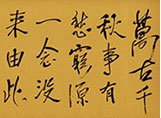 萬古千
秋事有
愁窮源
一念沒
來由此